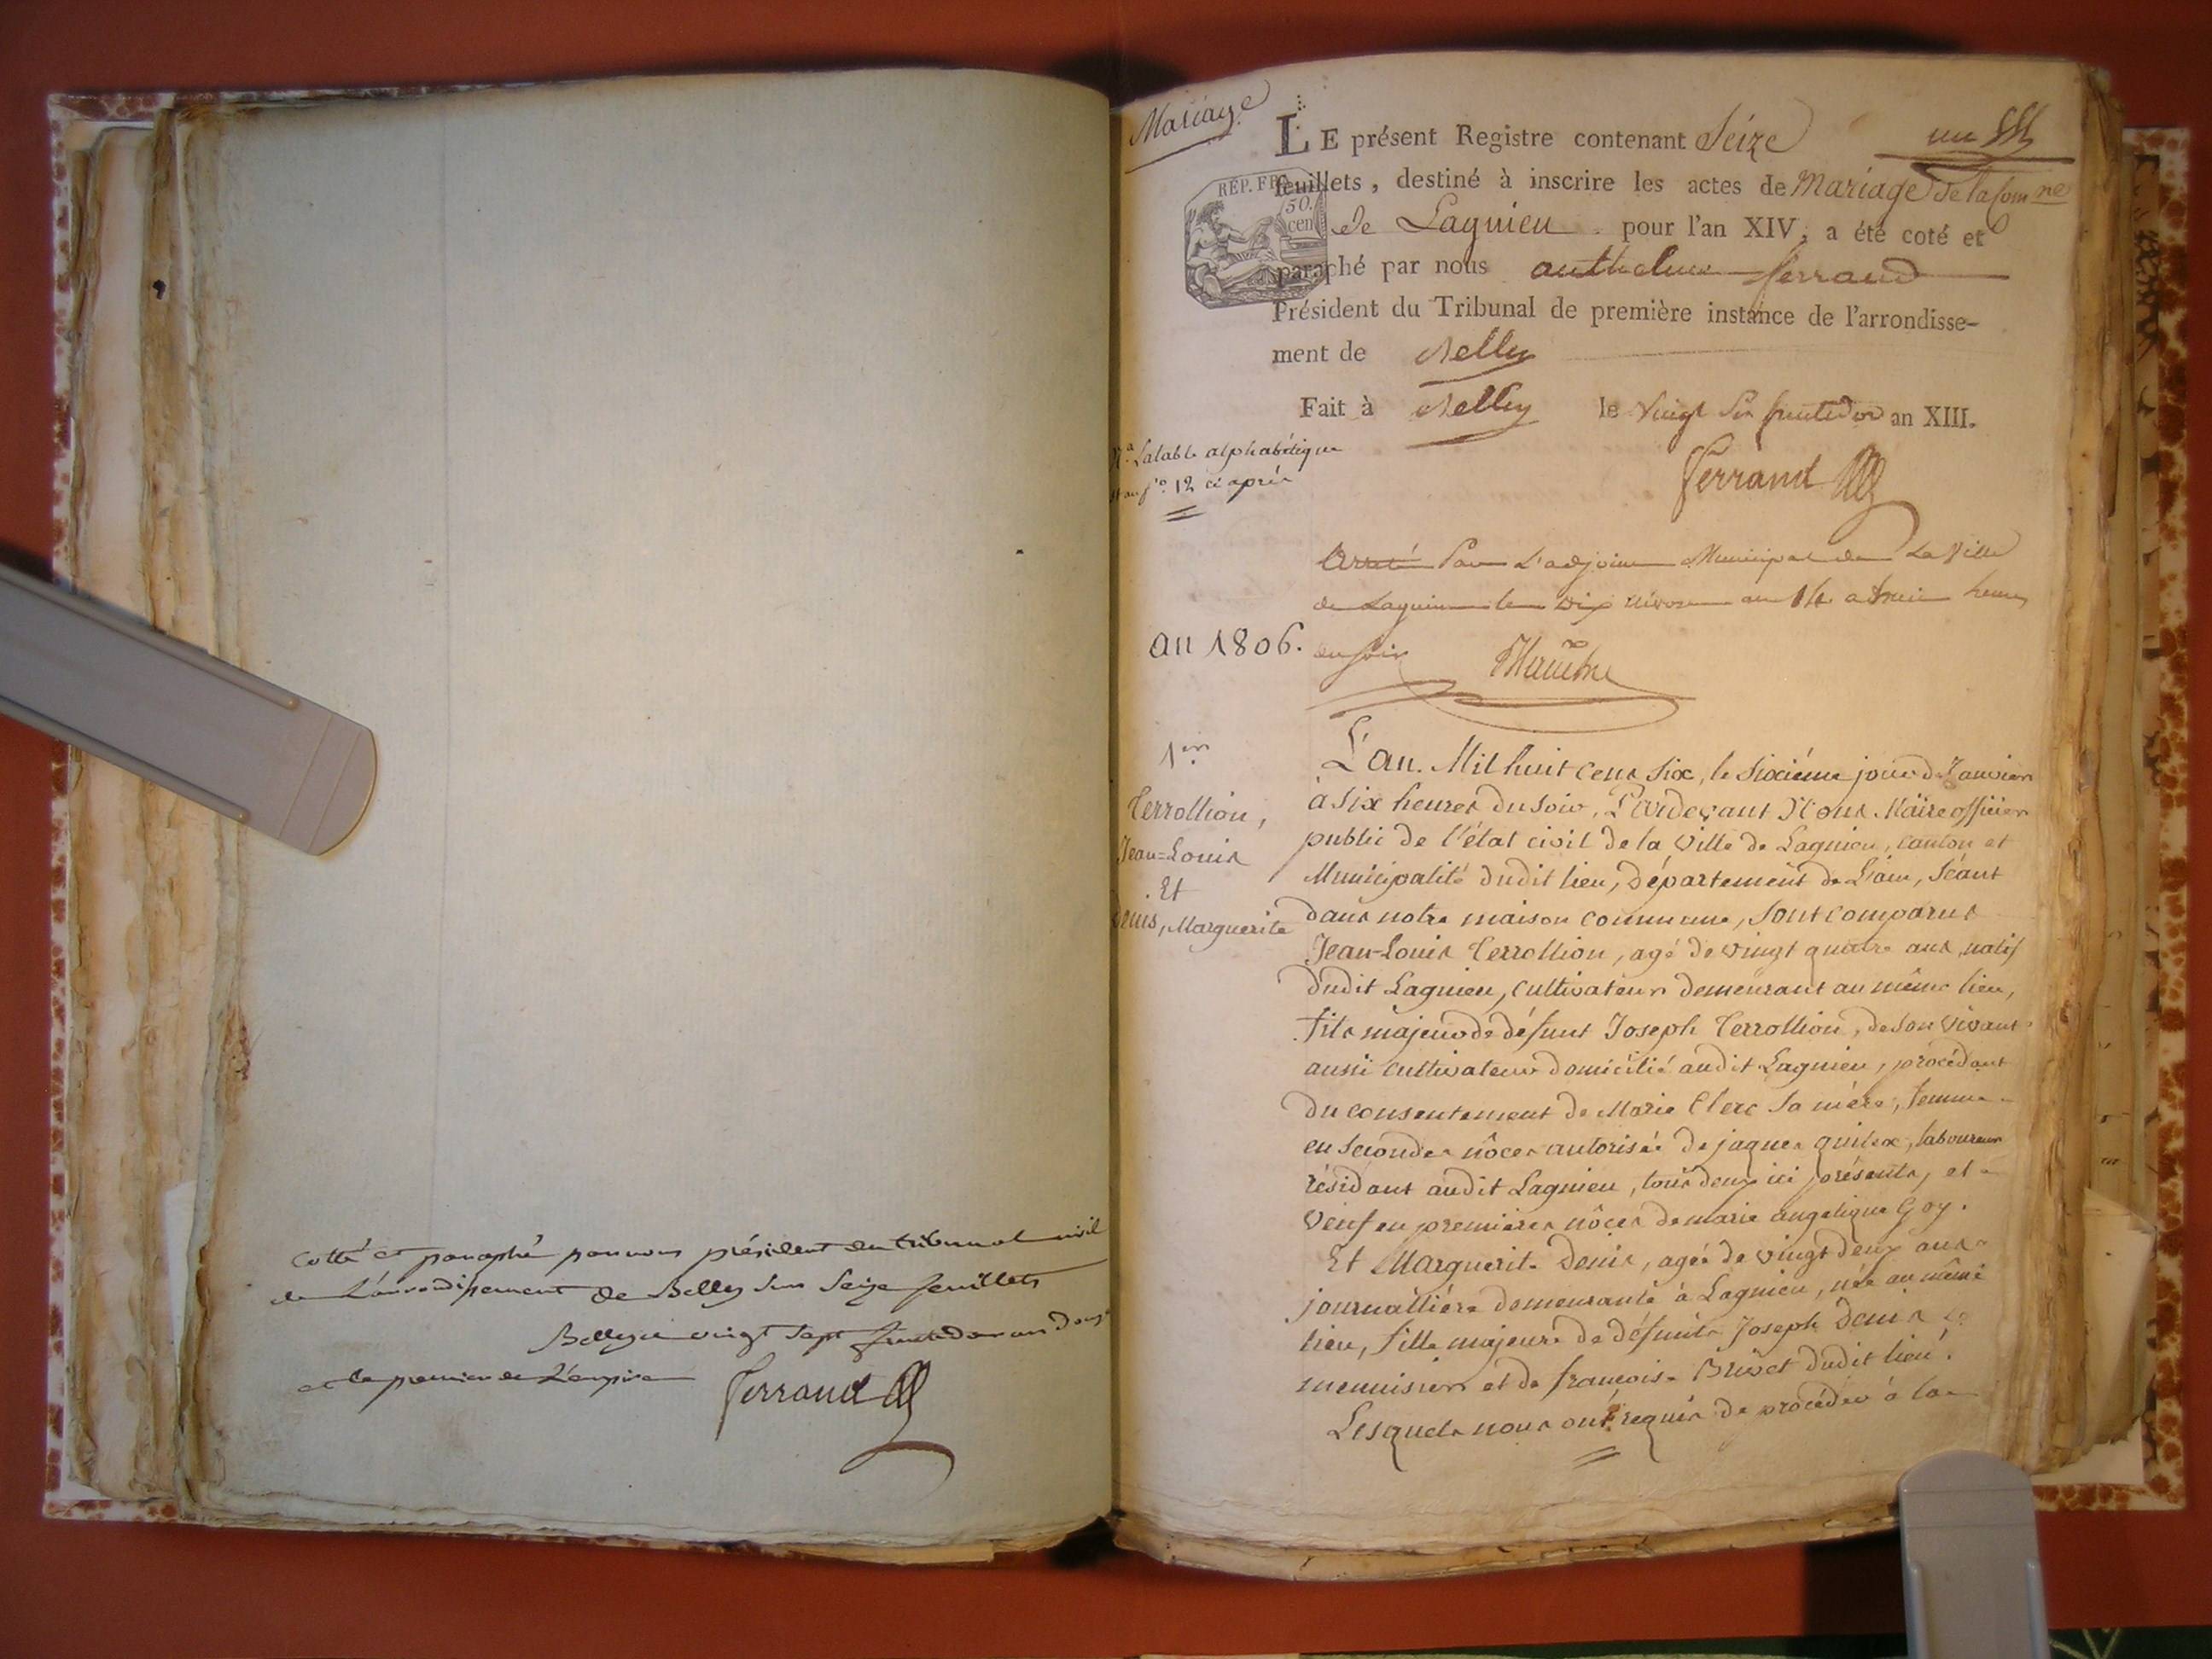 cotté et paraphé par nous président du tribunal civil
de L'arrondissement de Belley sur Seize feuillets
Belley ce vingt sept fructidor an douze
et le premier de L'empire
Ferrand
Mariage
LE présent Registre contenant Seize
un
feuillets, destiné à inscrire les actes de Mariage de la comne
RÉP. FRA.
50.
cen
de Lagnieu pour l'an XIV, a été coté et
paraphé par nous anthelme ferrand
Président du Tribunal de première instance de l'arrondisse-
ment de Belley
Fait à Belley le vingt Six fructidor an XIII.
Na. La table alphabétique
est au fo. 12 ci après
Ferrand
Arreté Par L'adjoint Municipal de La Ville
de Lagnieu le dix nivose an 14 a heures
du soir
an 1806.
1er
Terrollion,
Jean=Louis
Et
Denis, Marguerite
L'an Mil huit cent six, le sixiéme jour de Janvier
à six heures du soir, Pardeçant Nous Maire officier
public de l'état civil de la ville de Lagnieu, canton et
Municipalité dudit lieu, département de L'ain, séant
dans notre maison commune, sont comparus
Jean-Louis Terrollion, agé de vingt quatre ans, natif
dudit Lagnieu, cultivateur demeurant au même lieu,
fils majeur de défunt Joseph Terrollion, de son vivant
aussi cultivateur domicilié audit Lagnieu, procédant
du consentement de Marie Clerc sa mère, femme
en secondes nôces autorisée de jaques, laboureur
résidant audit Lagnieu, tous deux ici présents, et
veuf en premières nôces de marie angelique Goy.
Et Marguerite Denis, agée de vingt deux ans
journallière demeurante à Lagnieu, née au même
lieu, fille majeure de défunts Joseph Denis
menuisier et de françoise Brivet dudit lieu.
Lesquels nous ont requis de procéder à la